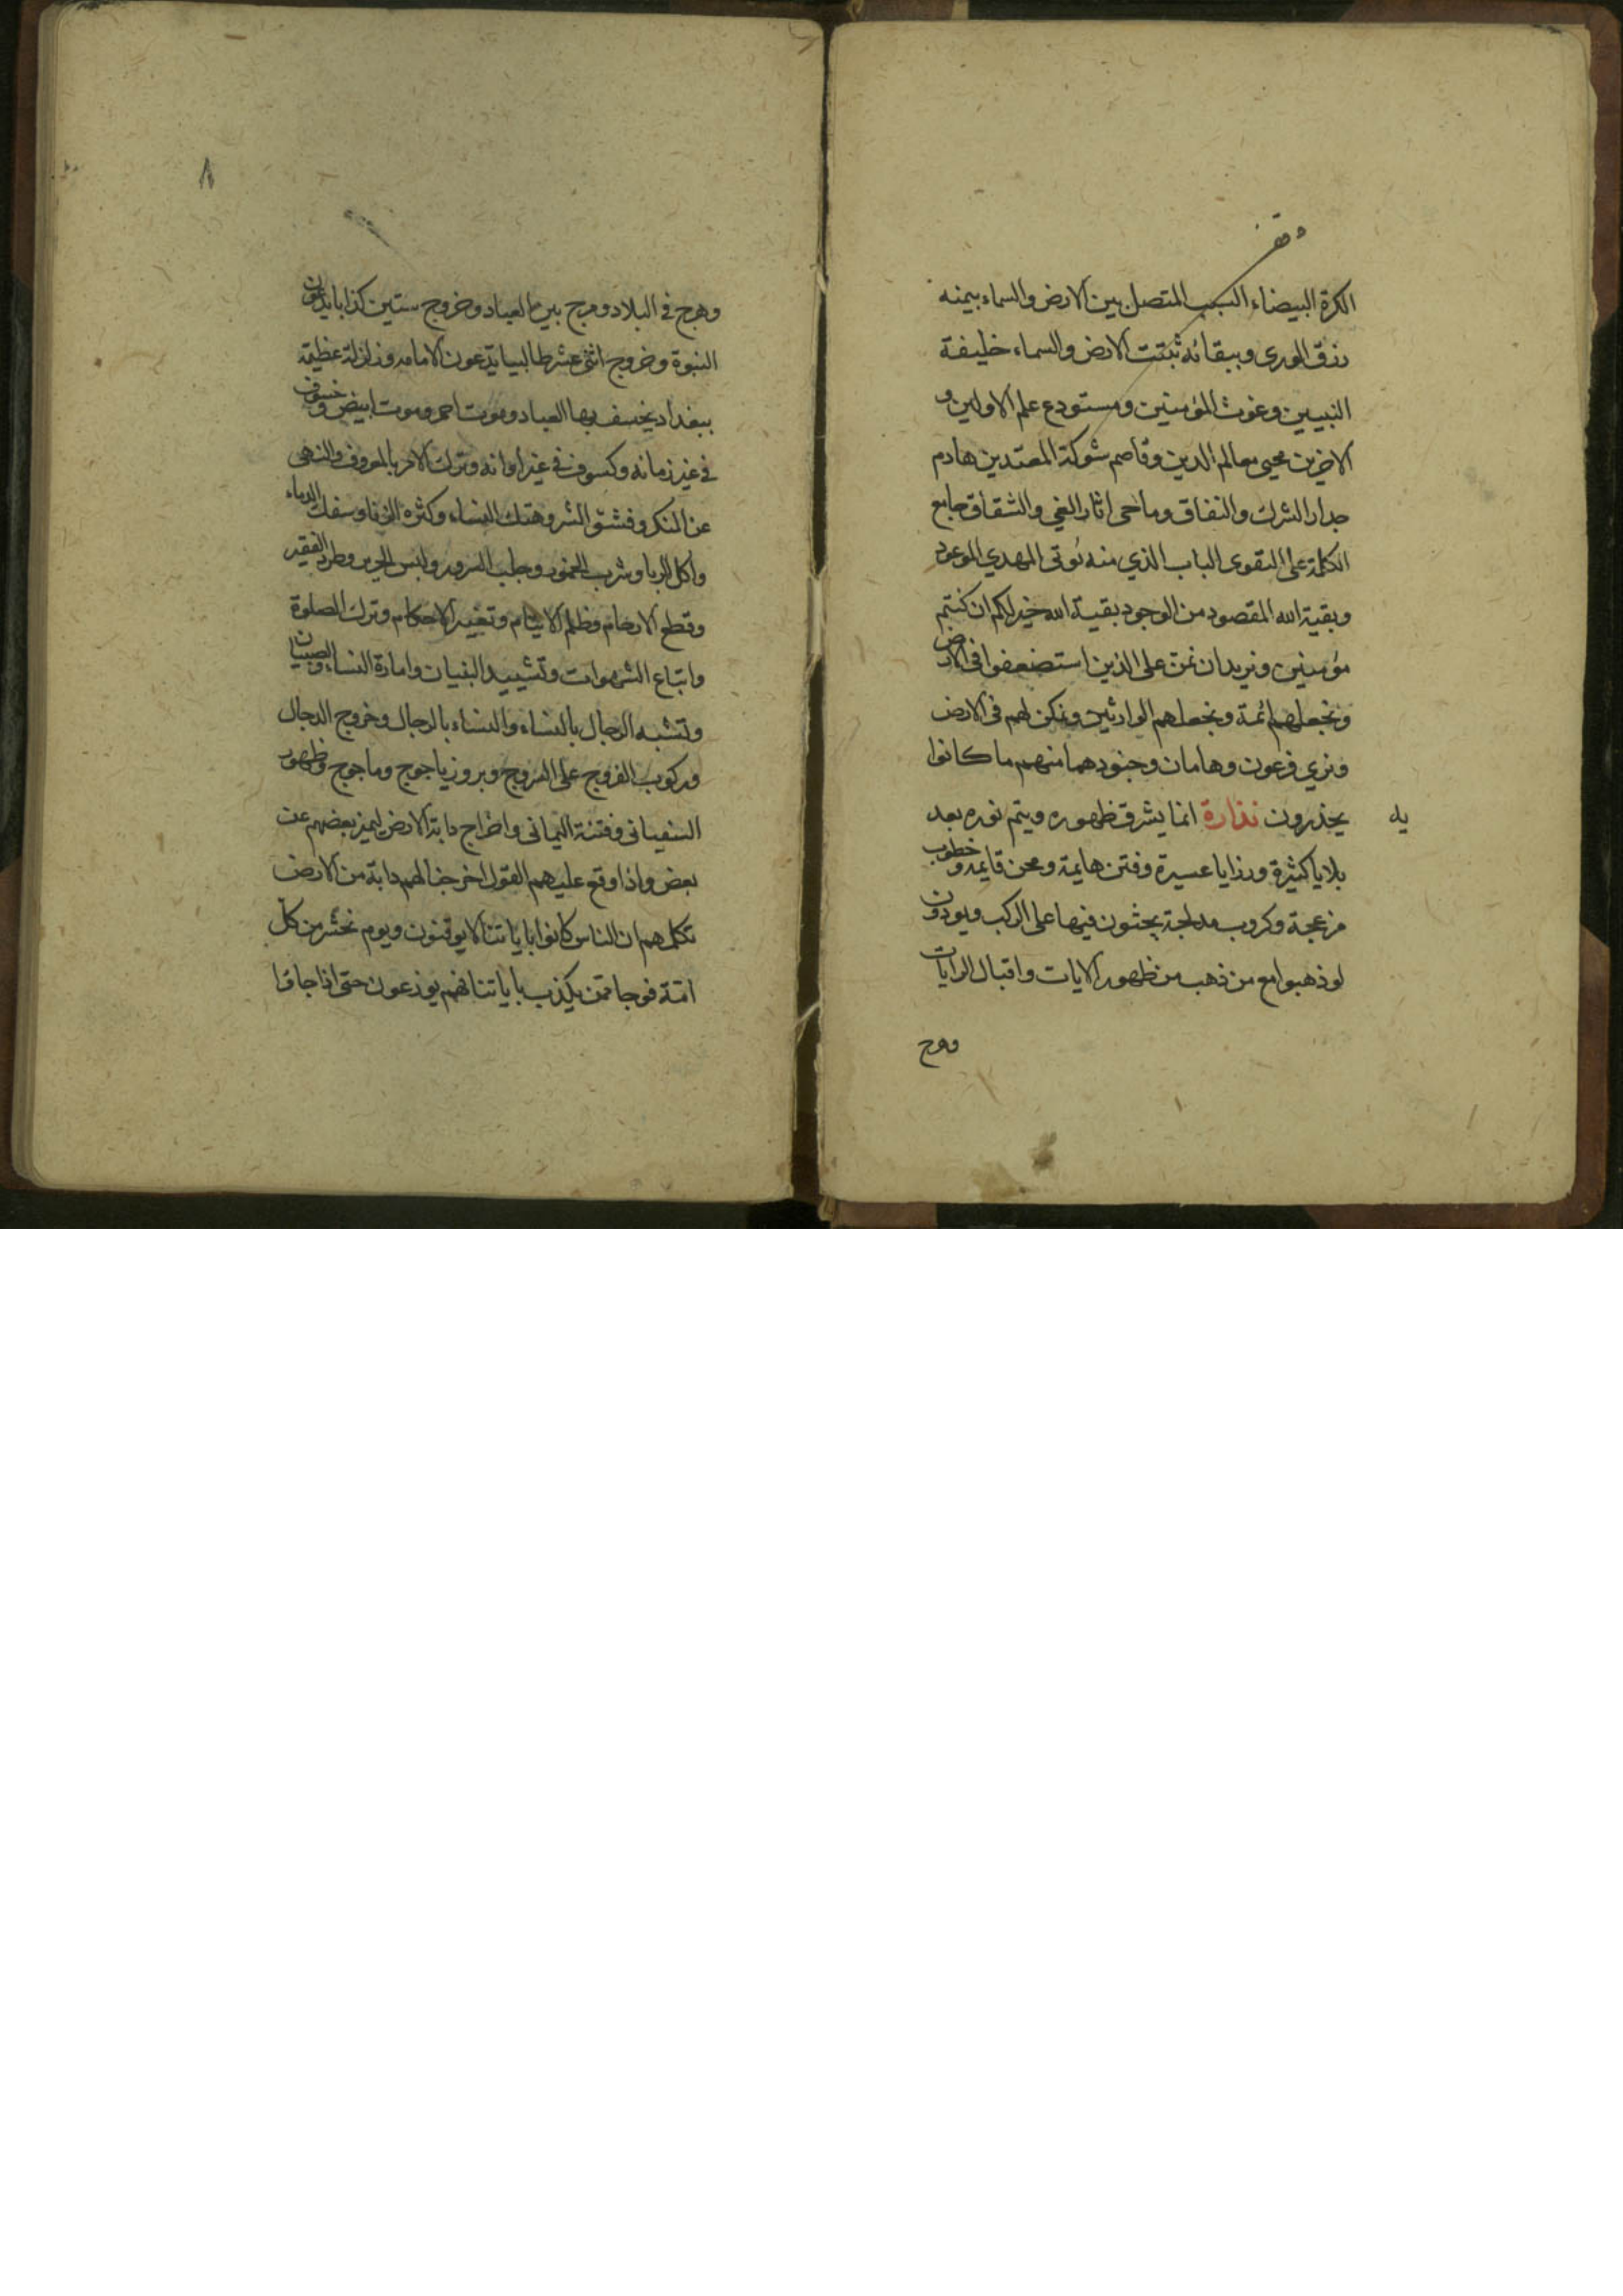 وقف
الكرة البيضاء السبب المتصل بين الارض والسماء بيمنه
رزق الورى وببقائه ثبتت الارض والسماء خليفة
النبيين وغوث المؤمنين ومستودع علم الاولين و
الاخرين محيى معالم الدين وقاصم شوكة المعتدين هادم
جدار الشرك والنفاق وماحى اثار الغي والشقاق جامع
الكلمة على التقوى الباب الذي منه يؤتى المهدي الموعود
وبقية الله المقصود من الوجود بقية الله خير لكم ان كنتم
مؤمنين ونريد ان نمن على الذين استضعفوا في الارض
ونجعلهم ائمة ونجعلهم الوارثين ونمكن لهم في الارض
ونري فرعون وهامان وجنودهما منهم ما كانوا
يه
يحذرون نذارة انما يشرق ظهوره ويتم نوره بعد
بلايا كثيرة ورزايا عسيرة وفتن هايمة ومحن قايمة وخطوب
مزعجة وكروب مدلجة يجثون فيها على الركب ويودون
لو ذهبوا مع من ذهب من ظهور الايات واقبال الرايات
وهرج
٨
وهرج في البلاد ومرج بين العباد وخروج ستين كذابا يدعون
النبوة وخروج اثنى عشر طالبيا يدعون الامامه وزلزلة عظيمة
ببغداد يخسف بها العباد وموت احمر وموت ابيض وخسوف
في غير زمانه وكسوف في غير اوانه وترك الامر بالمعروف والنهى
عن المنكر وفشو الشر وهتك النساء وكثره الزنا وسفك الدماء
واكل الربا وشرب الخمور وجلب السرور ولبس الحرير وطرد الفقير
وقطع الارحام وظلم الايتام وتغيير الاحكام وترك الصلوة
واتباع الشهوات وتشييد البنيان وامارة النساء والصبيان
وتشبه الرجال بالنساء والنساء بالرجال وخروج الدجال
وركوب الفروج على السروج وبروز ياجوج وماجوج وظهور
السفيانى وفتنة اليمانى واخراج دابة الارض ليميز بعضهم عن
بعض واذا وقع عليهم القول اخرجنا لهم دابة من الارض
تكلمهم ان الناس كانوا باياتنا لا يوقنون ويوم نحشر من كل
امة فوجا ممن يكذب باياتنا فهم يوزعون حتى اذا جاؤا